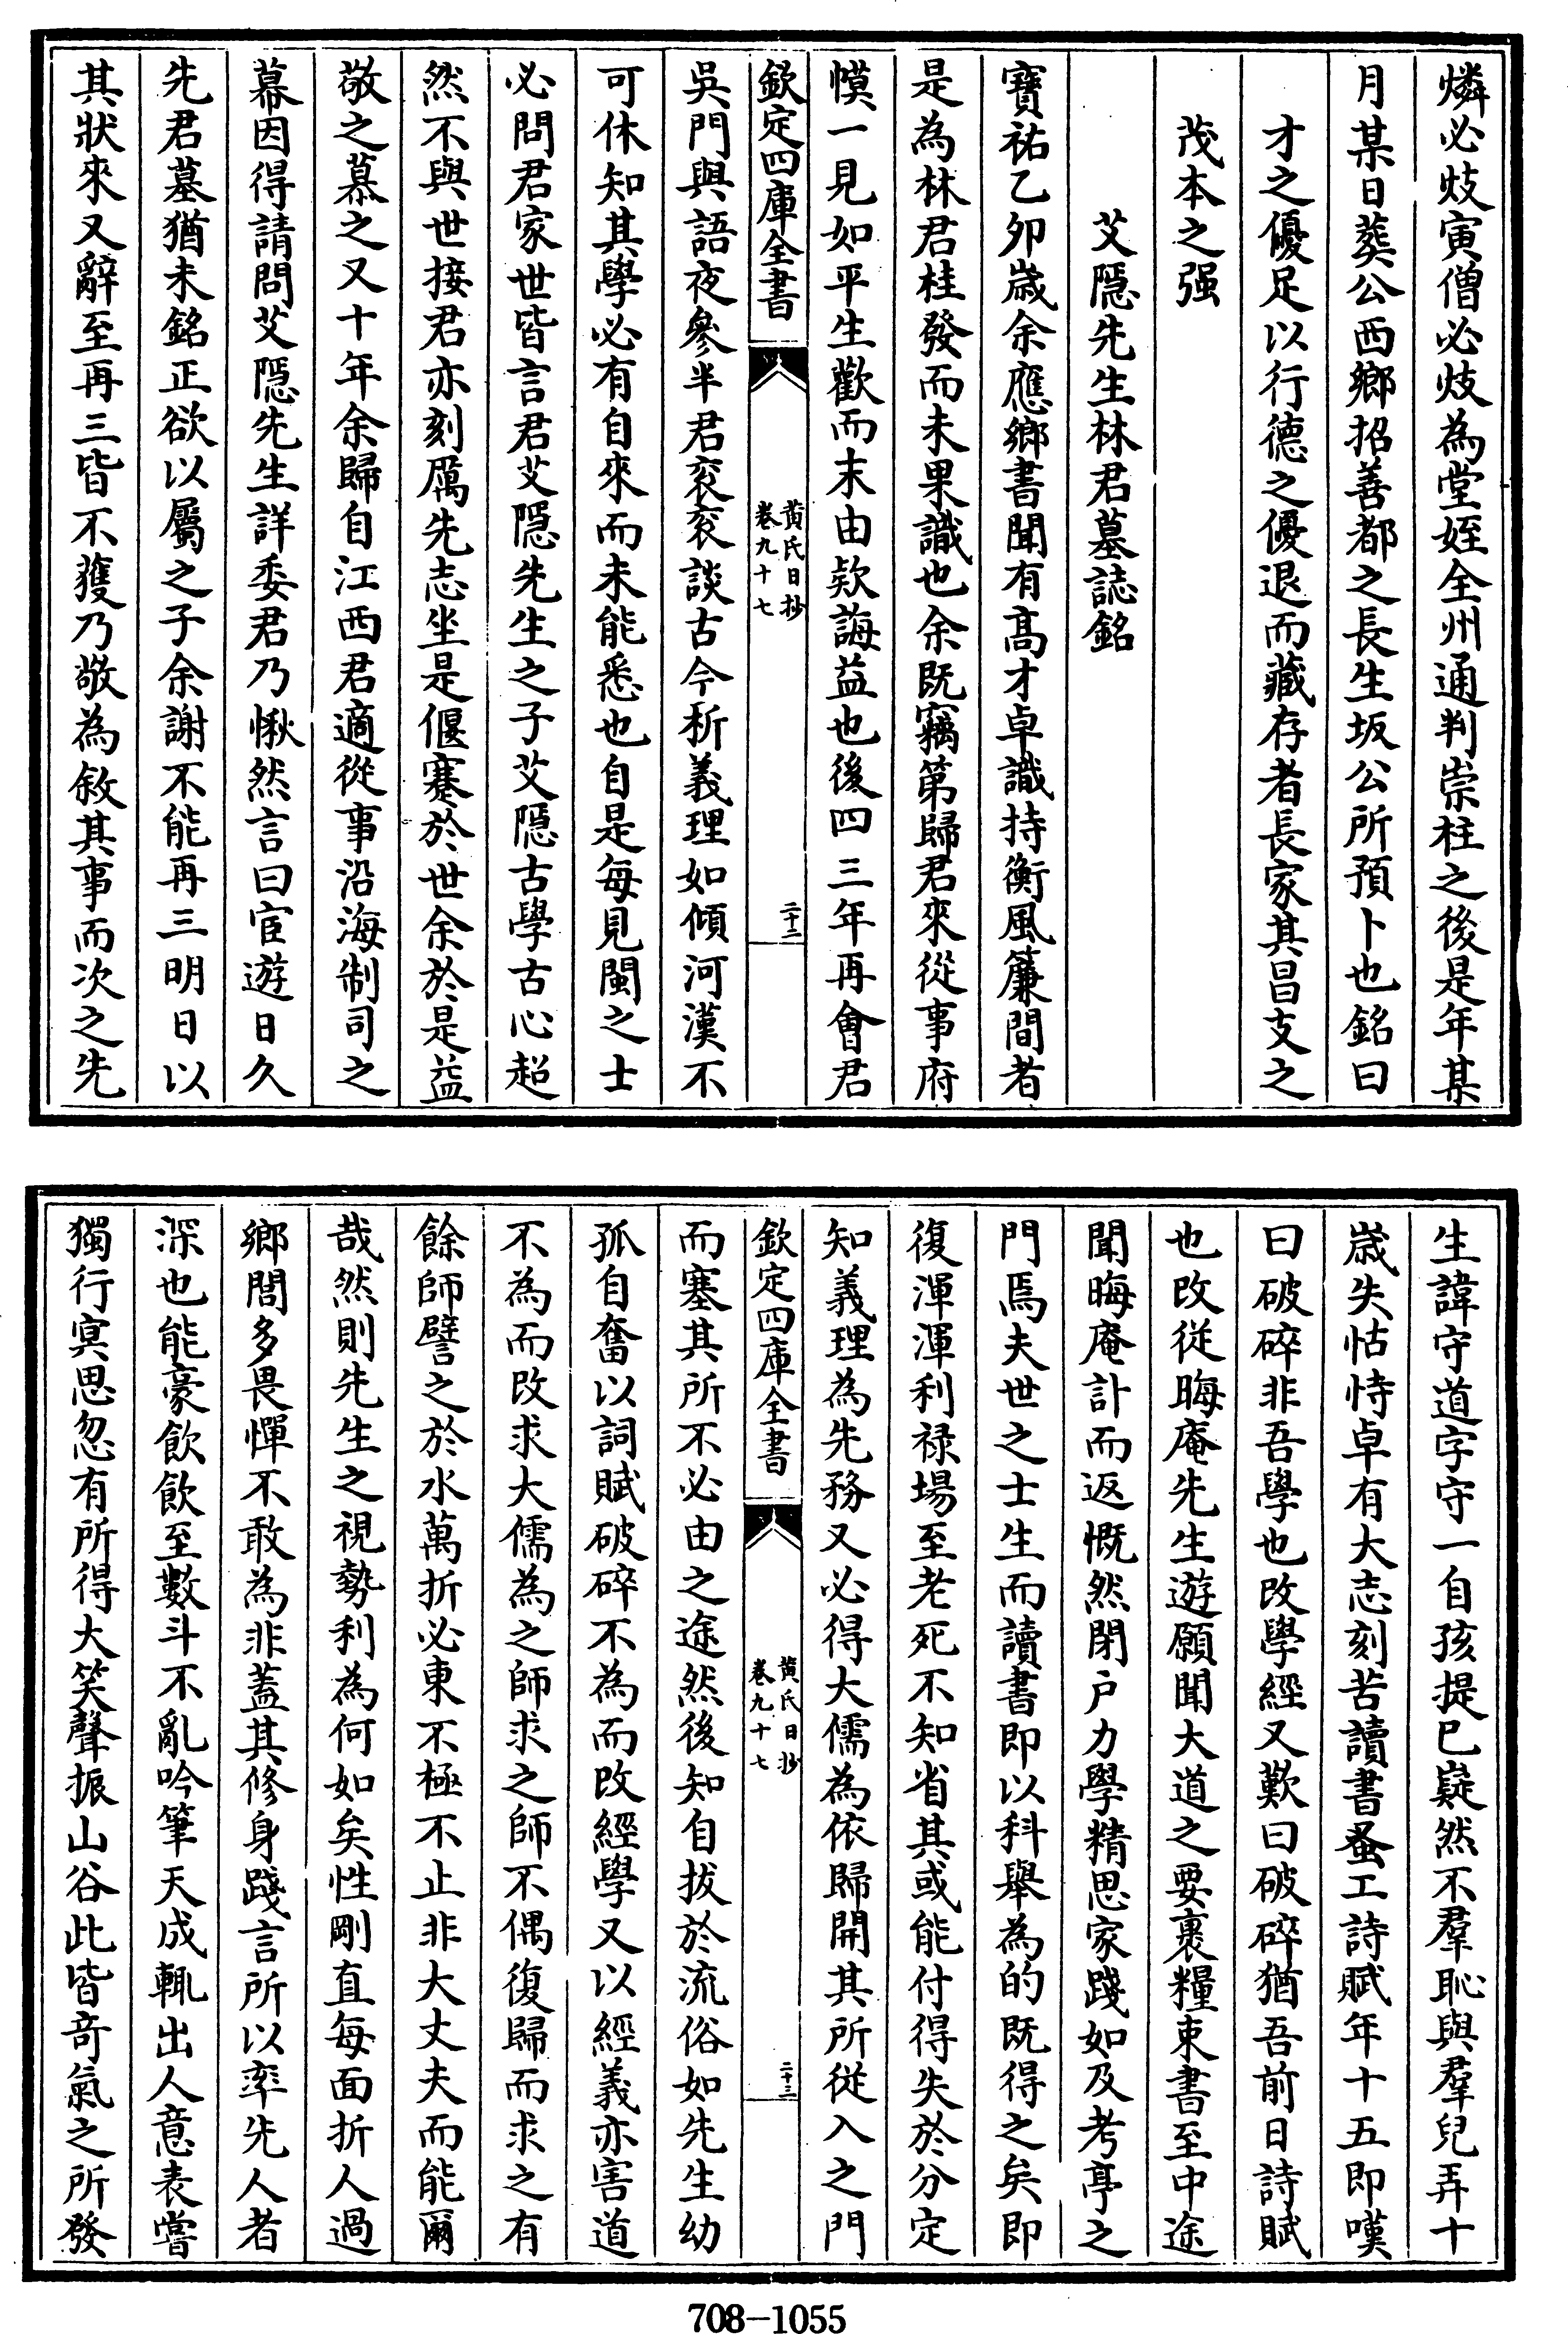 燐必㱿寅僧必㱿為堂姪全州通判崇柱之後是年某
月某日葬公西鄉招善都之長生坂公所預卜也銘曰
才之優足以行德之優退而藏存者長家其昌支之
茂本之强
艾隱先生林君墓誌銘
寶祐乙卯歲余應鄉書聞有高才卓識持衡風簾間者
是為林君桂發而未果識也余既竊第歸君來從事府
幙一見如平生歡而末由欵誨益也後四三年再會君
欽定四庫全書
黃氏日抄
卷九十七
二十二
吳門與語夜參半君衮衮談古今析義理如傾河漢不
可休知其學必有自來而未能悉也自是每見閩之士
必問君家世皆言君艾隱先生之子艾隱古學古心超
然不與世接君亦刻厲先志坐是偃蹇於世余於是益
敬之慕之又十年余歸自江西君適從事沿海制司之
幕因得請問艾隱先生詳委君乃愀然言曰宦遊日久
先君墓猶未銘正欲以屬之子余謝不能再三明日以
其狀來又辭至再三皆不獲乃敬為敘其事而次之先
生諱守道字守一自孩提已嶷然不羣恥與羣兒弄十
歲失怙恃卓有大志刻苦讀書蚤工詩賦年十五即嘆
曰破碎非吾學也改學經又歎曰破碎猶吾前日詩賦
也改從晦庵先生遊願聞大道之要裹糧束書至中途
聞晦庵訃而返慨然閉戶力學精思家踐如及考亭之
門焉夫世之士生而讀書即以科舉為的既得之矣即
復渾渾利祿場至老死不知省其或能付得失於分定
知義理為先務又必得大儒為依歸開其所從入之門
欽定四庫全書
黃氏日抄
卷九十七
二十三
而塞其所不必由之途然後知自拔於流俗如先生幼
孤自奮以詞賦破碎不為而改經學又以經義亦害道
不為而改求大儒為之師求之師不偶復歸而求之有
餘師譬之於水萬折必東不極不止非大丈夫而能爾
哉然則先生之視勢利為何如矣性剛直每面折人過
鄉閭多畏憚不敢為非蓋其修身踐言所以率先人者
深也能豪飲飲至數斗不亂吟筆天成輒出人意表嘗
獨行冥思忽有所得大笑聲振山谷此皆奇氣之所發
708-1055